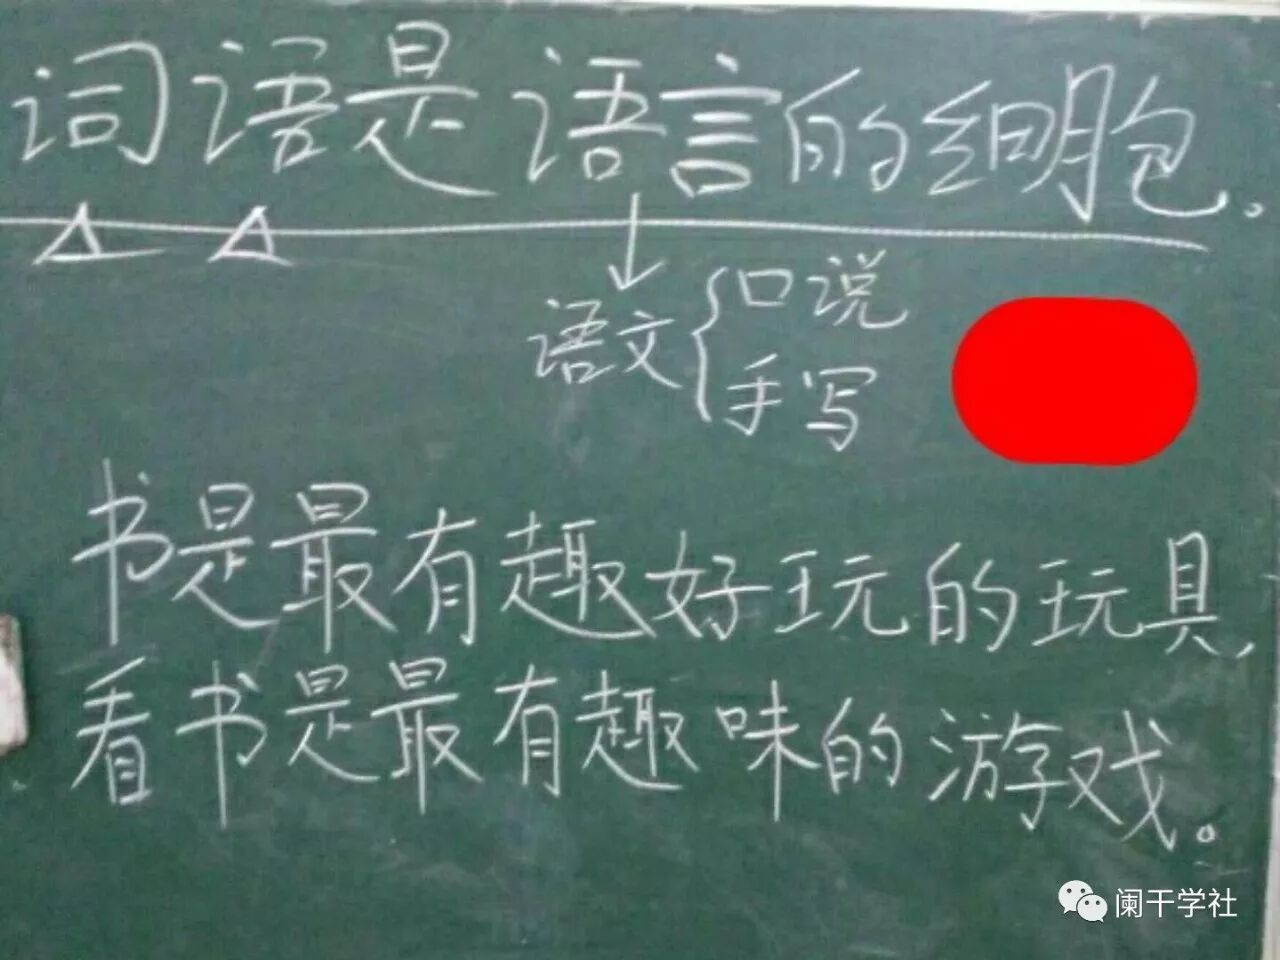 词语是语言的细胞。
语文{口说
手写
书是最有趣好玩的玩具,
看书是最有趣味的游戏。
阑干学社